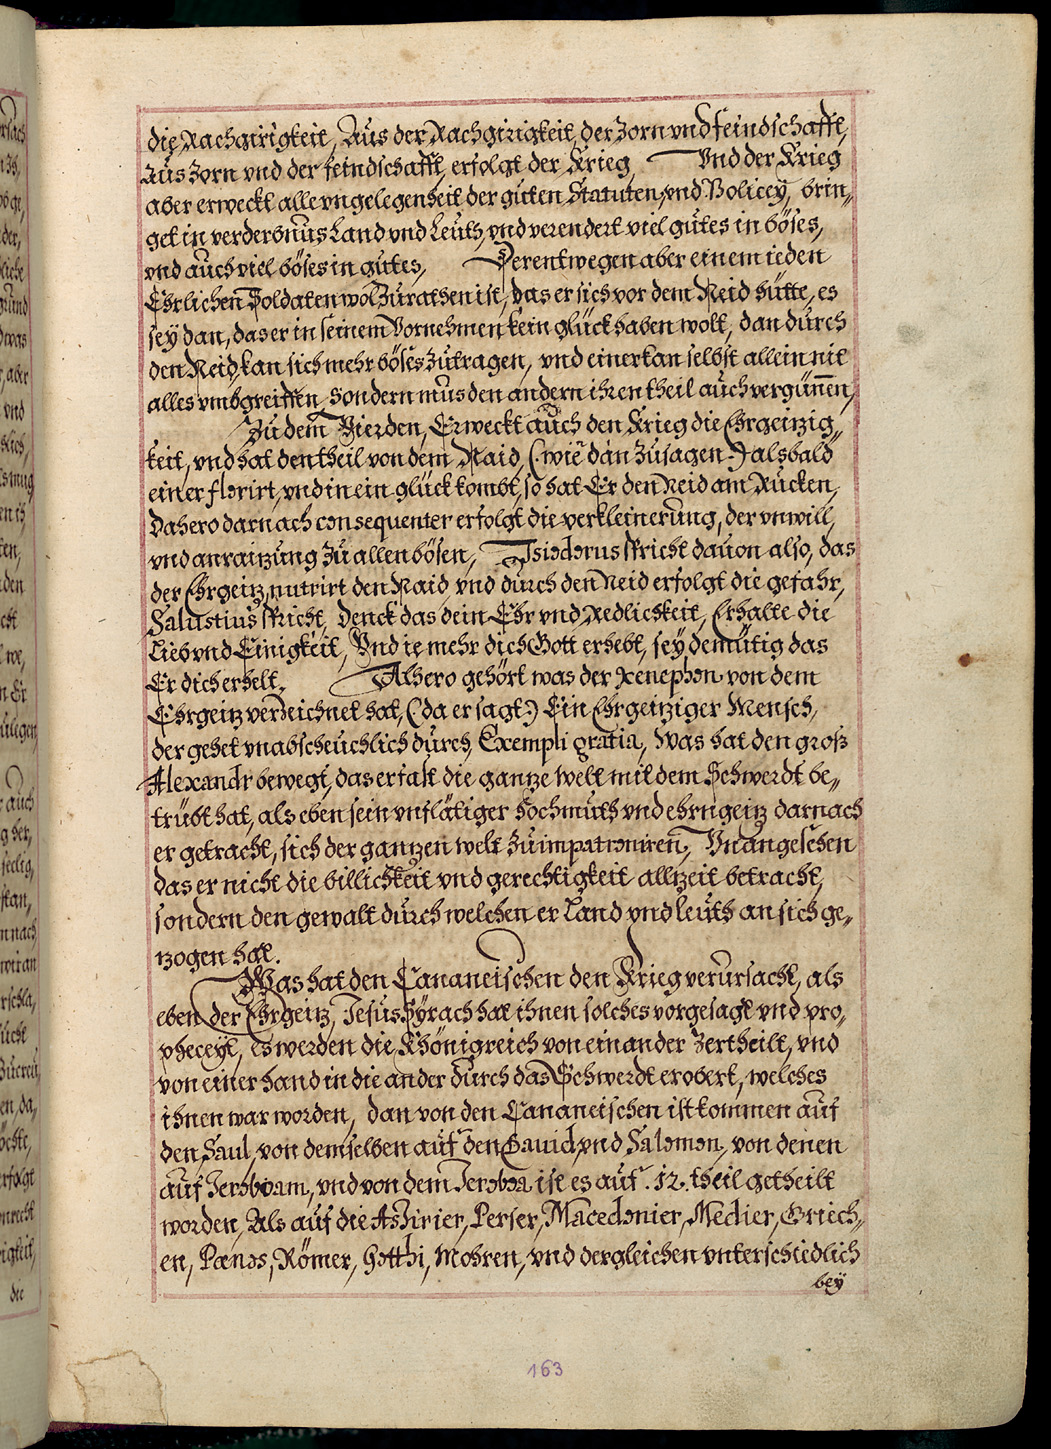 die Rachgirigkeit, Aus der Rachgirigkeit, der Zorn vnd feindschafft,
Aus Zorn vnd der feindschafft, erfolgt der Krieg, Vnd der Krieg
aber erweckt alle vngelegenheit der guten Statuten, vnd Policeÿ, brin„
get in verderbnus Land vnd Leuth, vnd verendert viel gutes in böses,
vnd auch viel böses in gutes, Derentwegen aber einem ieden
Ehrlichen Soldaten wol Zurathen ist, das er sich vor dem Neid hütte, es
seÿ dan, das er in seinem Vornehmen kein glück haben wolt, dan durch
den Neid, kan sich mehr böses Zutragen, vnd einer kan selbst allein nit
alles vmbgreiffen, sondern mus den andern ihren theil auch vergünnen,
Zu dem Vierden, Erweckt auch den Krieg die Ehrgeizig„
keit, vnd hat den theil von dem Naid, (: wie dan Zusagen :) alsbald
einer florirt, vnd in ein glück kombt, so hat Er den Neid am Rucken,
Dahero darnach consequenter erfolgt die verkleinerung, der vnwill,
vnd anraizung Zu allen bösen, Isidorus spricht dauon also, das
der Ehrgeiz, nutrirt den Naid vnd durch den Neid erfolgt die gefahr,
Salustius spricht, Denck das dein Ehr vnd Redlichkeit, Erhalte die
Lieb vnd Einigkeit, Vnd ie mehr dich Gott erhebt, seÿ demütig das
Er dich erhelt. Alhero gehört was der Xenephon von dem
Ehrgeiz verzeichnet hat, (: da er sagt :) Ein Ehrgeiziger Mensch,
der gehet vnabscheuchlich durch, Exempli gratia, Was hat den groß
Alexandr bewegt, das er fast die ganze welt mit dem Schwerdt be„
trübt hat, als eben sein vnflätiger hochmuth vnd ehrngeiz darnach
er getracht, sich der ganzen welt Zu impatroniren, Vnangesehen
das er nicht die billichkeit vnd gerechtigkeit allzeit betracht,
sondern den gewalt durch welchen er Land vnd leuth an sich ge„
zogen hat.
Was hat den Cananeischen den Krieg verursacht, als
eben der Ehrgeiz, Jesus Sÿrach hat ihnen solches vorgesagt vnd pro„
pheceÿt, es werden die Khönigreich von einander Zertheilt, vnd
von einer hand in die ander durch das Schwerdt erobert, welches
ihnen war worden, dan von den Cananeischen ist kommen auf
den Saul, von demselben auf den Dauid, vnd Salomon, von denen
auf Jeroboam, vnd von dem Jeroboa ist es auf .12. theil getheilt
worden, Als auf die Aszirier, Perser, Macedonier, Medier, Griech„
en, Pœnos, Römer, Gotthi, Mohren, vnd dergleichen vnterschiedlich
beÿ
163